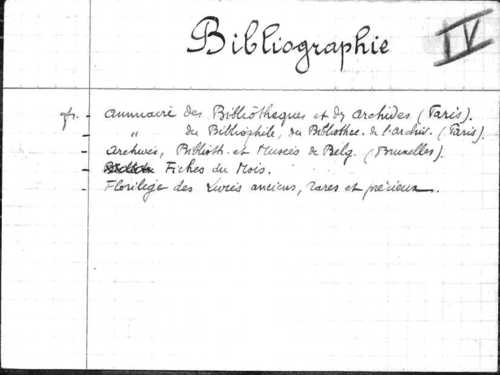 Bibliographie
IV
fr. - Annuaire des Bibliothèques et des Archives (Paris).
- " du Bibliophile, du Bibliothec. de l'archiv. (Paris).
- Archives, Biblioth. et Musées de Belg. (Bruxelles).
- Fiches du Mois.
- Florilège des Livres anciens, rares et précieux.